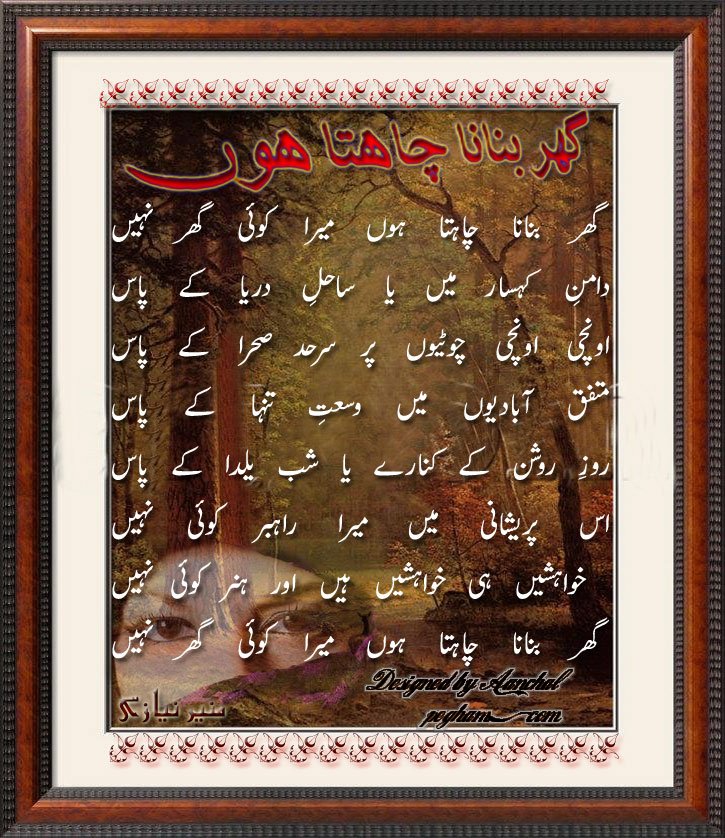 گھر بنانا چاہتا ہوں
گھر بنانا چاہتا ہوں میرا کوئی گھر نہیں
دامنِ کہسار میں یا ساحلِ دریا کے پاس
اونچی اونچی چوٹیوں پر سرحد صحرا کے پاس
متفق آبادیوں میں وسعتِ تنہا کے پاس
روزِ روشن کے کنارے یا شب یلدا کے پاس
اس پریشانی میں میرا راہبر کوئی نہیں
خواہشیں ہی خواہشیں ہیں اور ہنر کوئی نہیں
گھر بنانا چاہتا ہوں میرا کوئی گھر نہیں
Designed by Aanchal
pegham.com
منیر نیازی